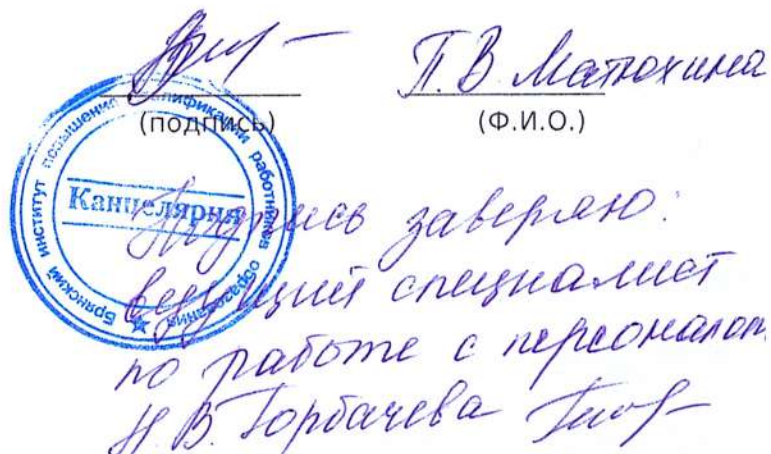 П.В. Матюхина
(подпись)
(Ф.И.О.)
Брянский институт повышения квалификации работников образования
Канцелярия
Подпись заверяю:
ведущий специалист
по работе с персоналом
Н.В. Горбачева